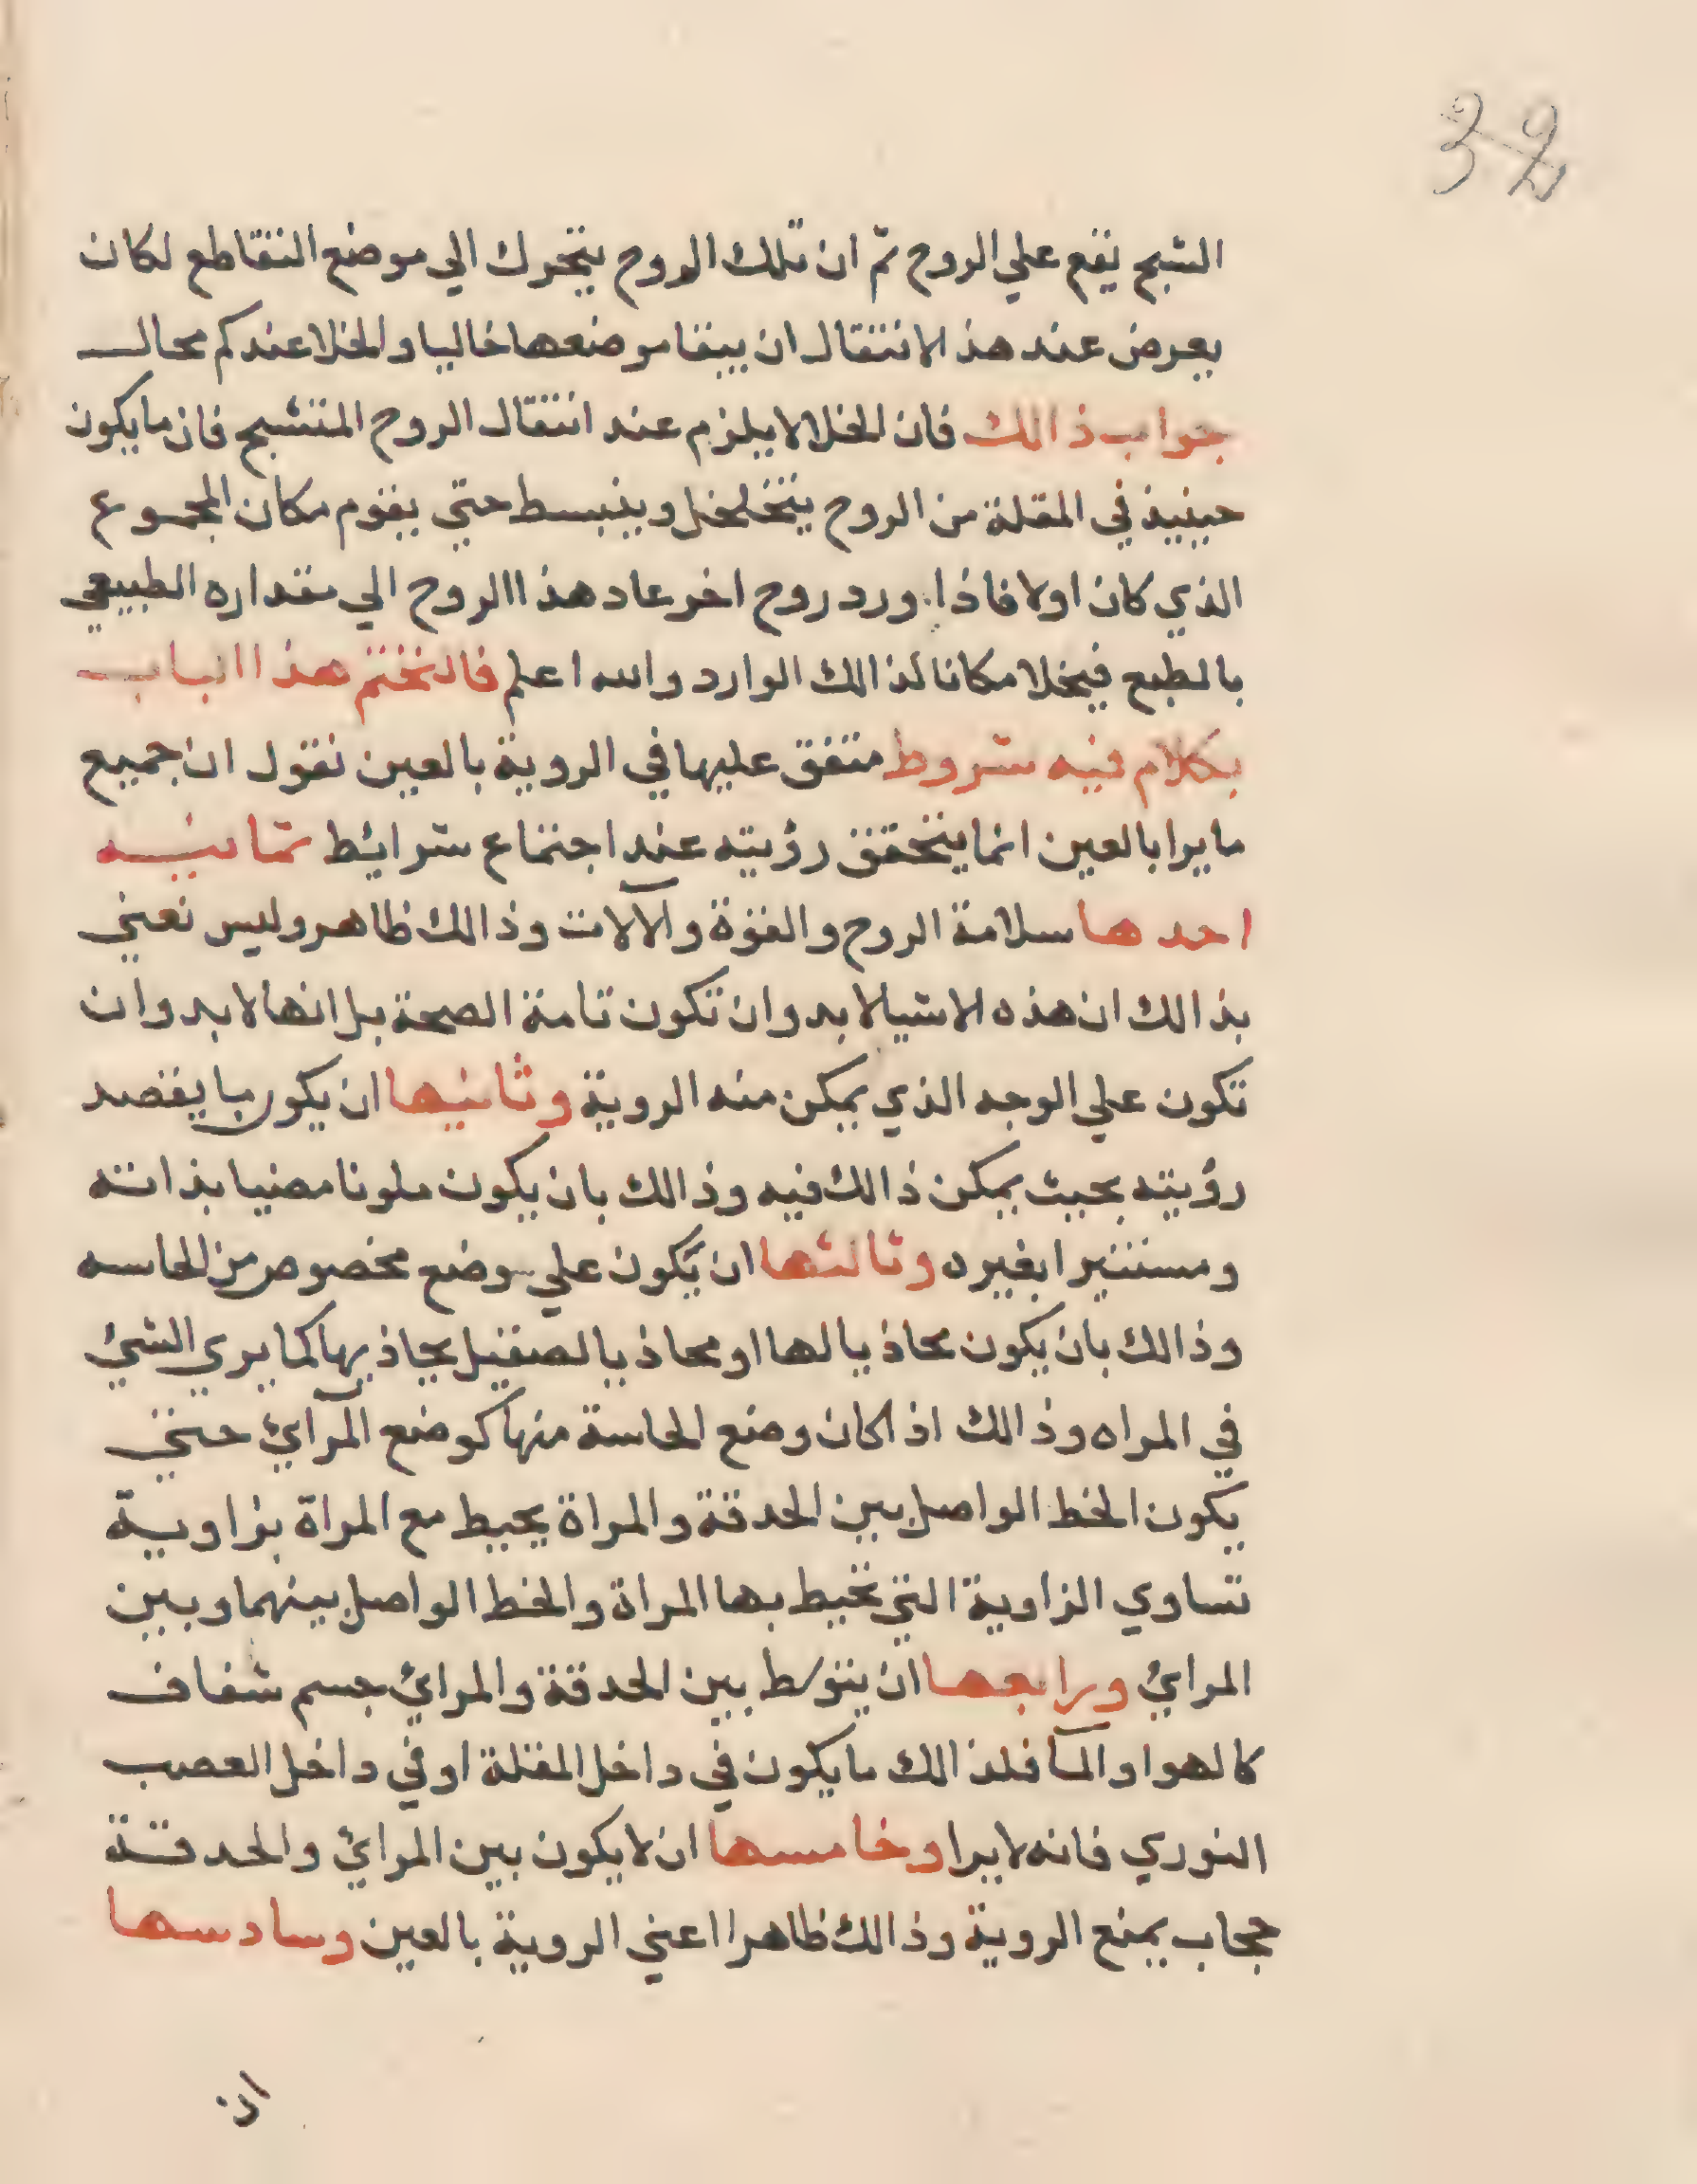 32
الشبح يقع علي الروح ثم ان تلك الروح يتحرك الي موضع التقاطع لكان
يعرض عند هذ الانتقال ان يبقا موضعها خاليا والخلا عندكم محال
جواب ذالك فان الخلا لا يلزم عند انتقال الروح المتشبح فان ما يكون
حينيذ في المقلة من الروح يتخلخل وينبسط حتي يقوم مكان المجموع
الذي كان اولا فاذا ورد روح اخر عاد هذا الروح الي مقداره الطبيعي
بالطبع فيخلا مكانا لذالك الوارد والله اعلم فالنختم هذا الباب
بكلام فيه شروط متفق عليها في الروية بالعين نقول ان جميع
ما يرا بالعين انما يتحقق رؤيته عند اجتماع شرايط ثمانيه
احدها سلامة الروح والقوة والآلات وذالك ظاهر وليس نعني
بذالك ان هذه الاشيا لا بد وان تكون تامة الصحة بل انها لا بد وان
تكون علي الوجه الذي يمكن منه الروية وثانيها ان يكون ما يقصد
رؤيته بحيث يمكن ذالك فيه وذالك بان يكون ملونا مضيا بذاته
ومستنيرا بغيره وثالثها ان يكون علي وضع مخصوص من الحاسه
وذالك بان يكون محاذيا لها او محاذيا لصقيل يحاذيها كما يري الشئ
في المراه وذالك اذا كان وضع الحاسة منها كوضع المرآئ حتي
يكون الخط الواصل بين الحدقة والمراة يحيط مع المراة بزاوية
تساوي الزاوية التي تحيط بها المراة والخط الواصل بينهما وبين
المرائ ورابعها ان يتوسط بين الحدقة والمرائ جسم شفاف
كالهوا والمآ فلذالك ما يكون في داخل المقلة او في داخل العصب
النوري فانه لا يرا وخامسها ان لا يكون بين المرائ والحدقة
حجاب يمنع الروية وذالك ظاهرا اعني الروية بالعين وسادسها
ان